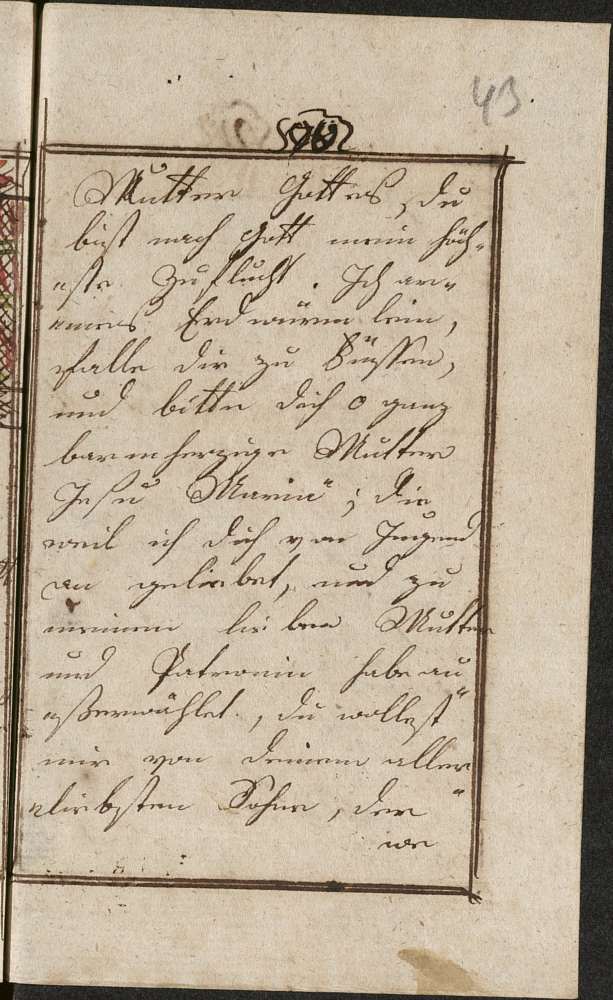 43
Mutter Gottes, du
bist nach Gott mein höch„
„ste Zuflucht. Ich ar„
„mes Erdwürmlein,
falle dir zu Füssen,
und bitte dich o ganz
barmherzige Mutter
Jesu Maria; die
weil ich dich von Jugend
an geliebet, und zu
meinem lieben Mutter
und Patronin habe au„
„ßerwählet, du wollest
mir von deinem aller„
„liebsten Sohne, der
we